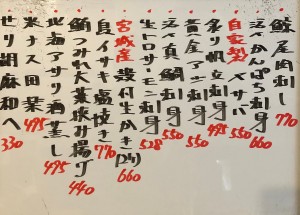 鯨尾肉刺し 770
活〆かんぱち刺身 660
自家製〆サバ 550
炙り帆立刺身 495
青岸アジ刺身 550
活〆真鯛刺身 550
生トロサーモン刺身 528
宮城産殻付生かき(2ケ) 660
島イサキ塩焼き 770
鮪ひれ大葉挟み揚げ 440
北海アサリ酒蒸し 495
米ナス田楽 495
せり胡麻和へ 330